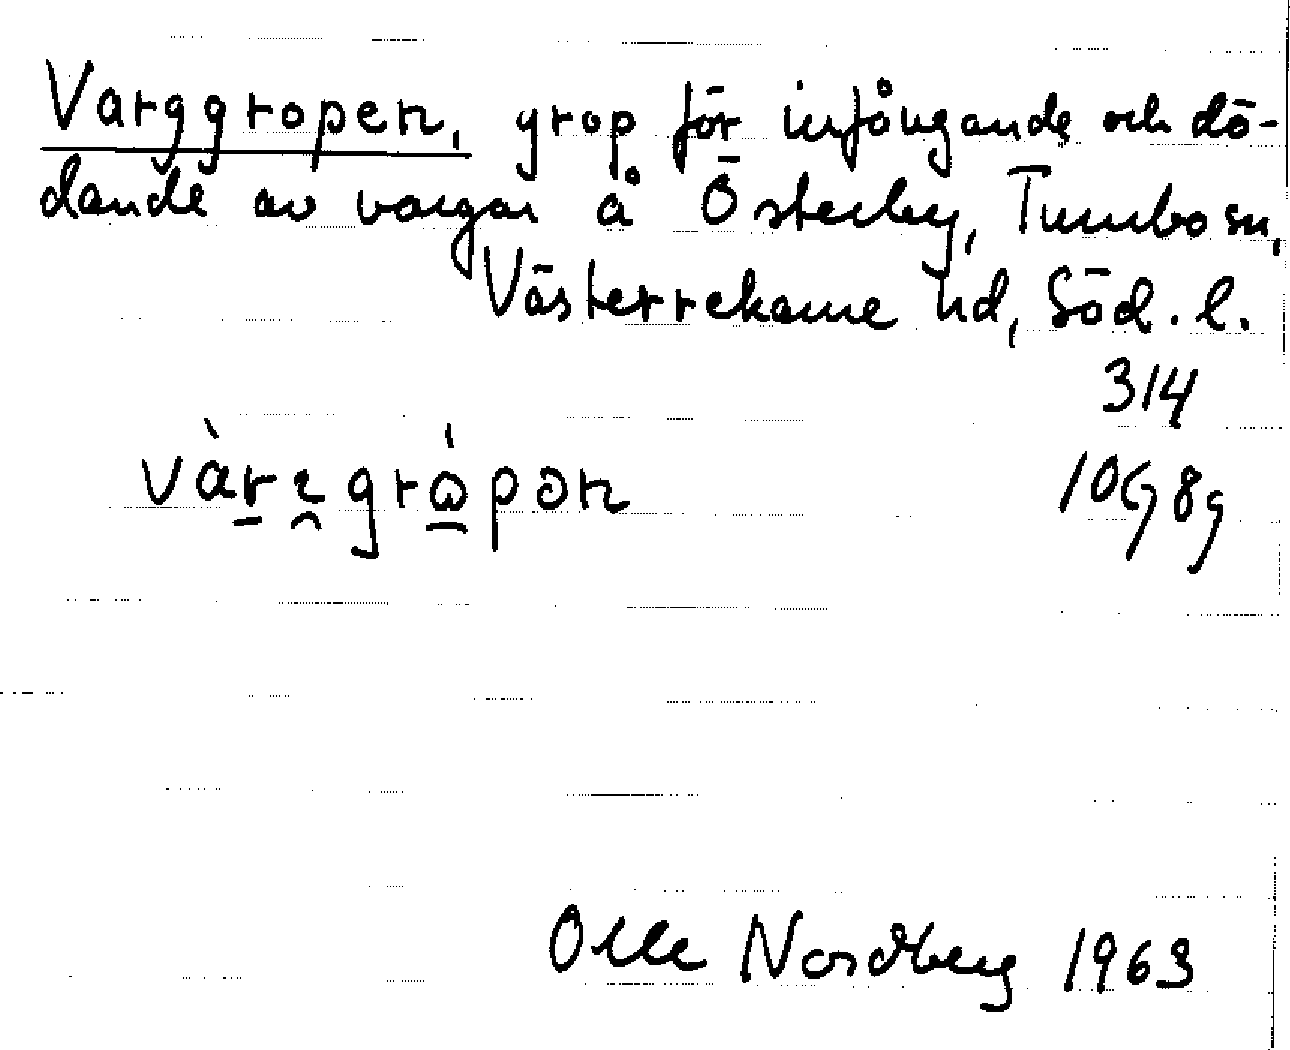 Varggropen, grop för infångande och dö-
dande av vargar å Österby, Tumbo sn,
Västerrekarne hd, Söd. l.
314
10G8g
Olle Nordberg 1963